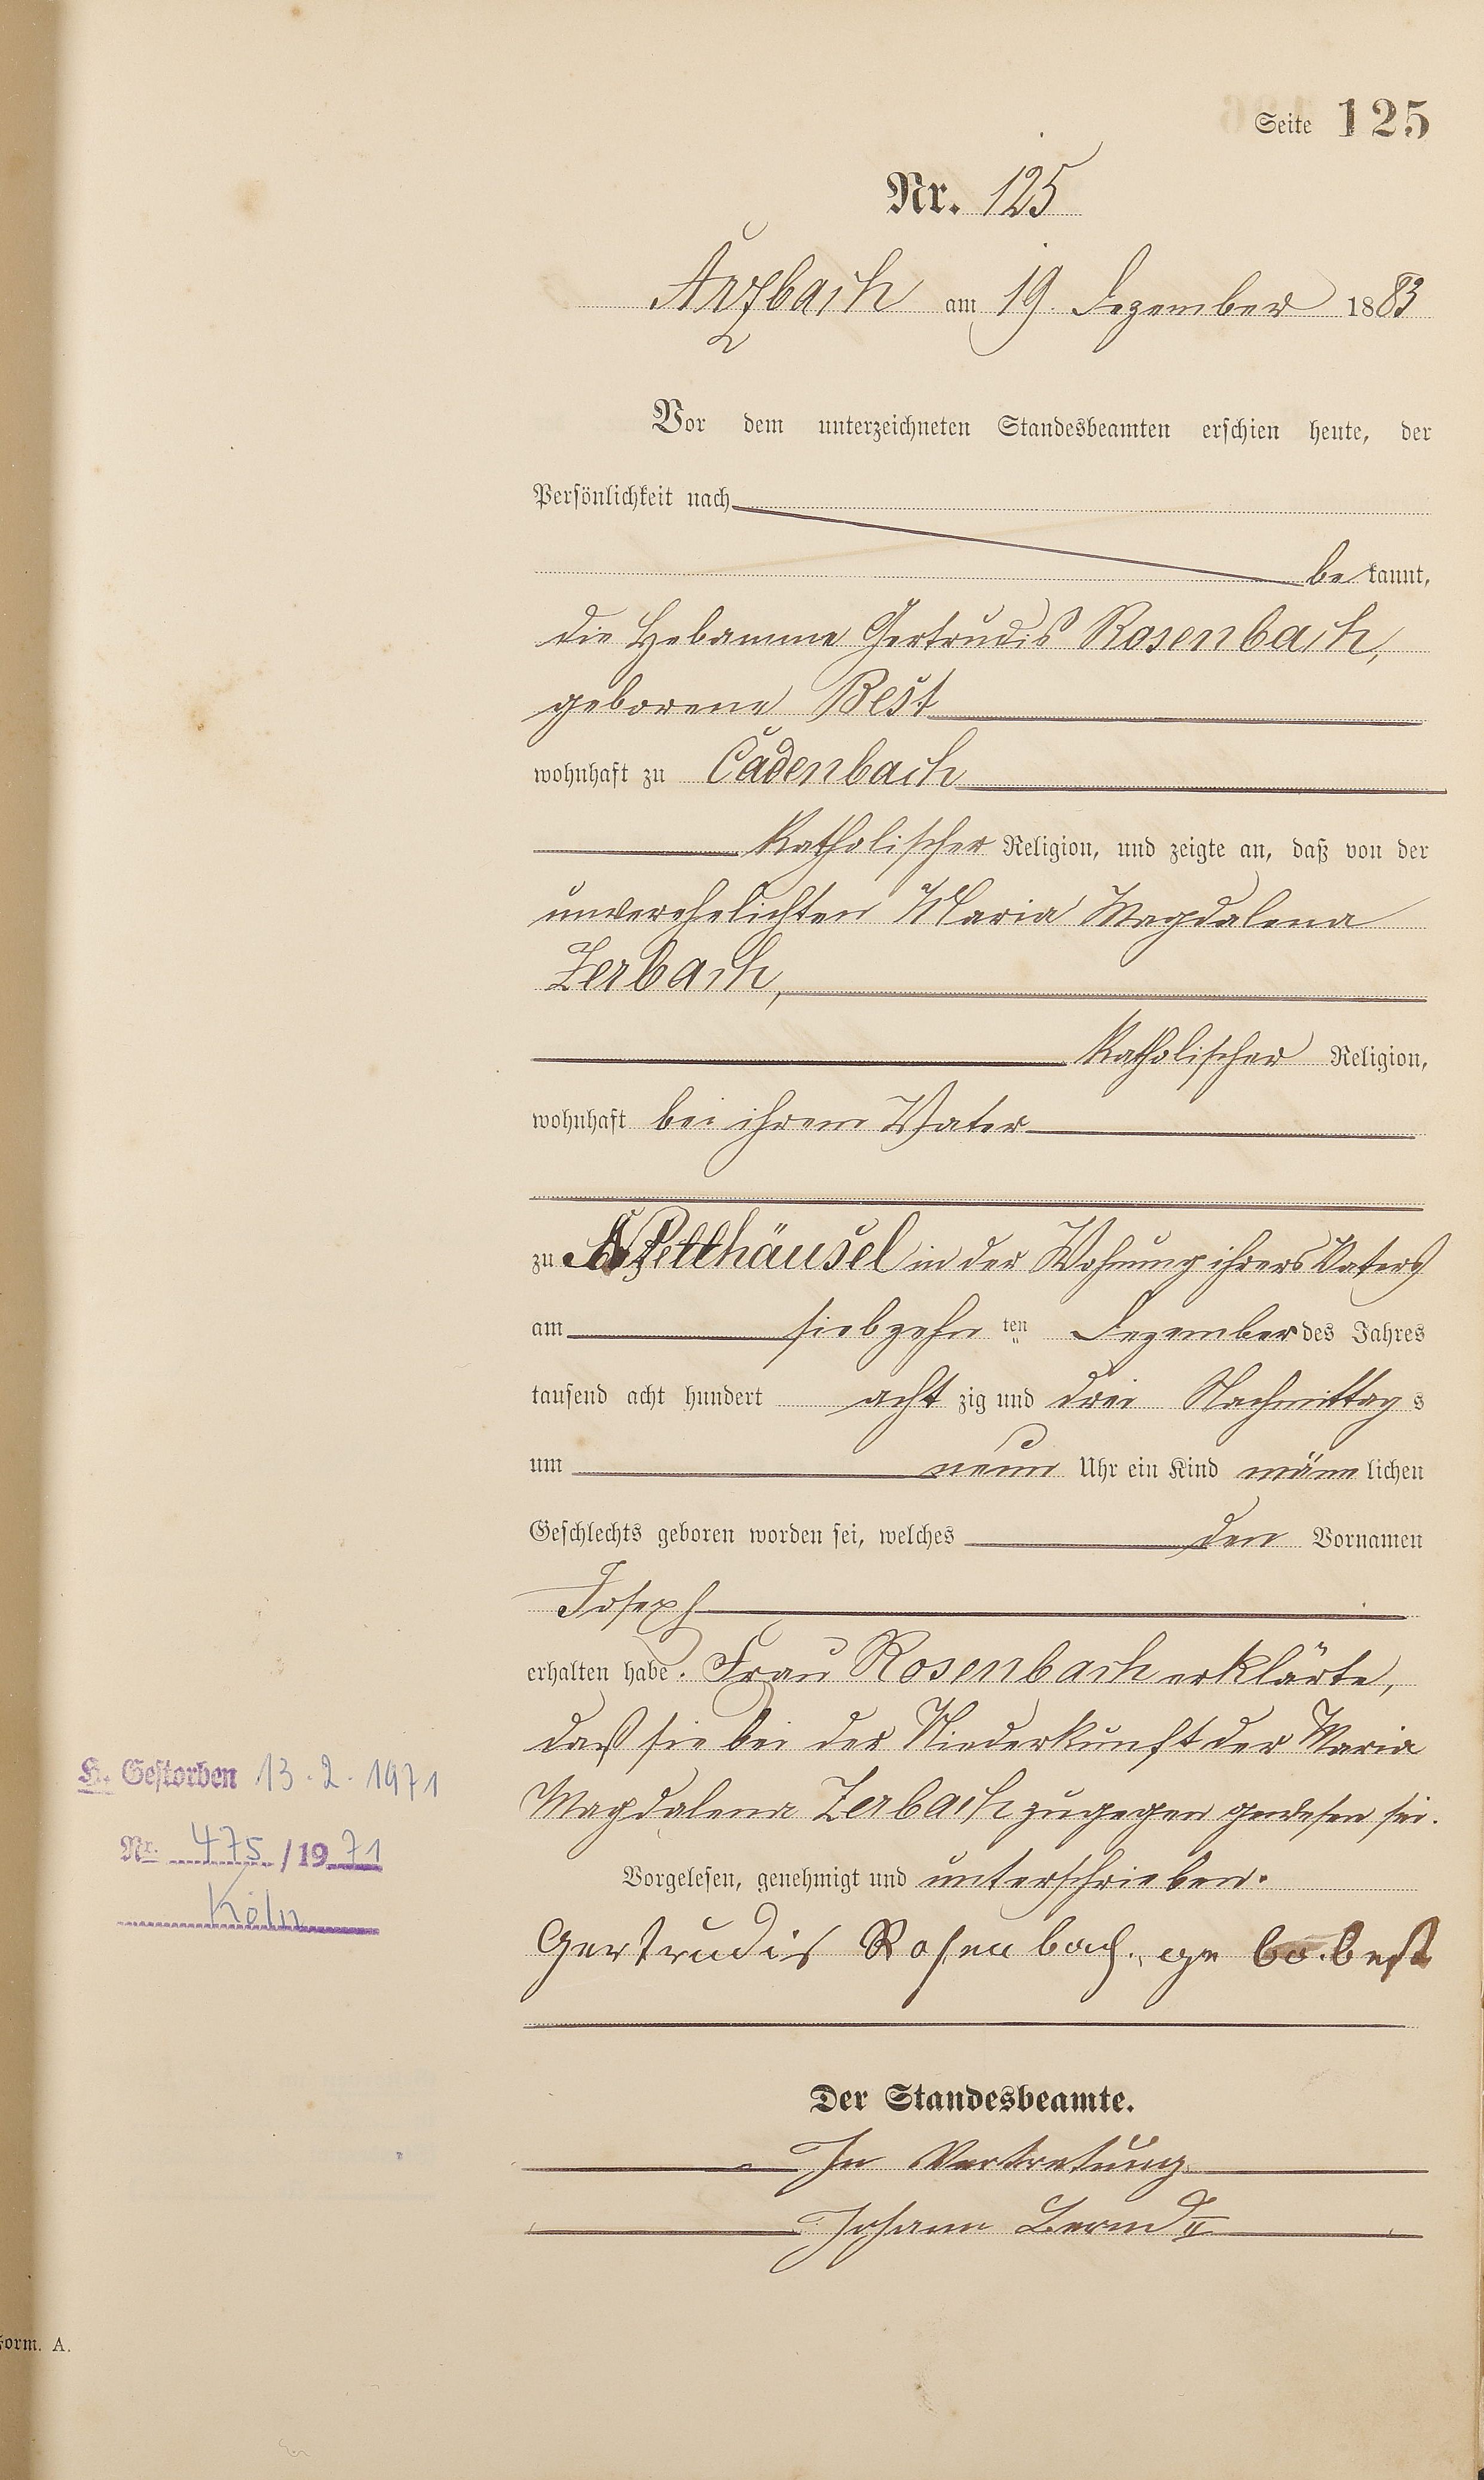 Seite 125
Nr. 125
Arzbach am 19. Dezember 1883
Vor dem unterzeichneten Standesbeamten erschien heute, der
Persönlichkeit nach
be kannt,
die Hebamme Gertrudis Rosenbach,
geborene Best
wohnhaft zu Cadenbach
Katholischer Religion, und zeigte an, daß von der
unverehelichten Maria Magdalena
Zerbach,
Katholischer Religion,
wohnhaft bei ihrem Vater
zu häusel in der Wohnung ihrers Vaters
am siebzehn ten Dezember des Jahres
tausend acht hundert acht zig und drei Nachmittag s
um neun Uhr ein Kind männ lichen
Geschlechts geboren worden sei, welches den Vornamen
Joseph
erhalten habe. Frau Rosenbach erklärte,
daß sie bei der Niederkunft der Maria
Magdalena Zerbach zugegen gewesen sei.
Vorgelesen, genehmigt und unterschrieben.
Gertrudis Rosenbach. ge bo. best
Der Standesbeamte.
In Vertretung
Johann Bernd II
H. Gestorben 13.2.1971
Nr. 475/1971
Köln
Form. A.